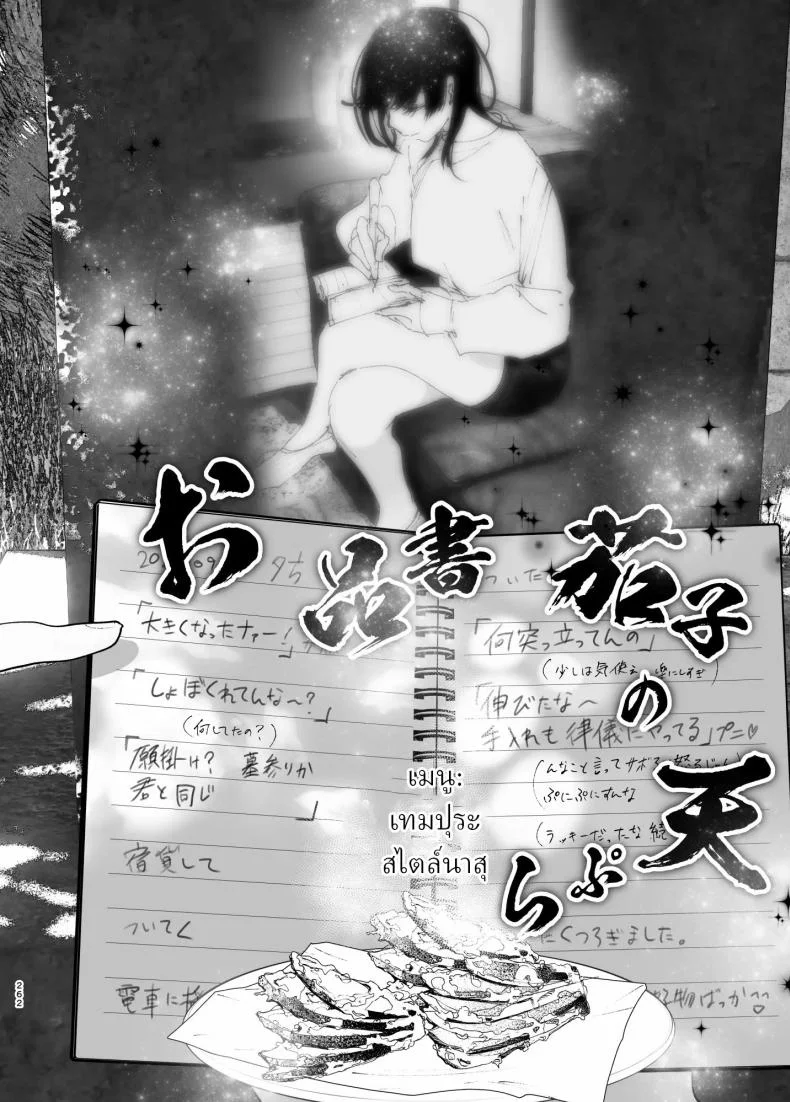 お品書
茄子の天ぷら
เมนู:
เทมปุระ
สไตล์นาสุ
「大きくなったナァー!」
「しょぼくれてんな〜?」
(何してたの?)
「願掛け? 墓参りか
君と同じ
」
宿貸して
ついてく
電車に
ついた
「何突っ立ってんの」
(少しは気使え
「伸びたな〜
手入れも律儀にやってる」プニ♡
(んなこと言ってサボ
ぷにぷにすんな
(ラッキーだったな
くつろぎました。
物ばっか
262